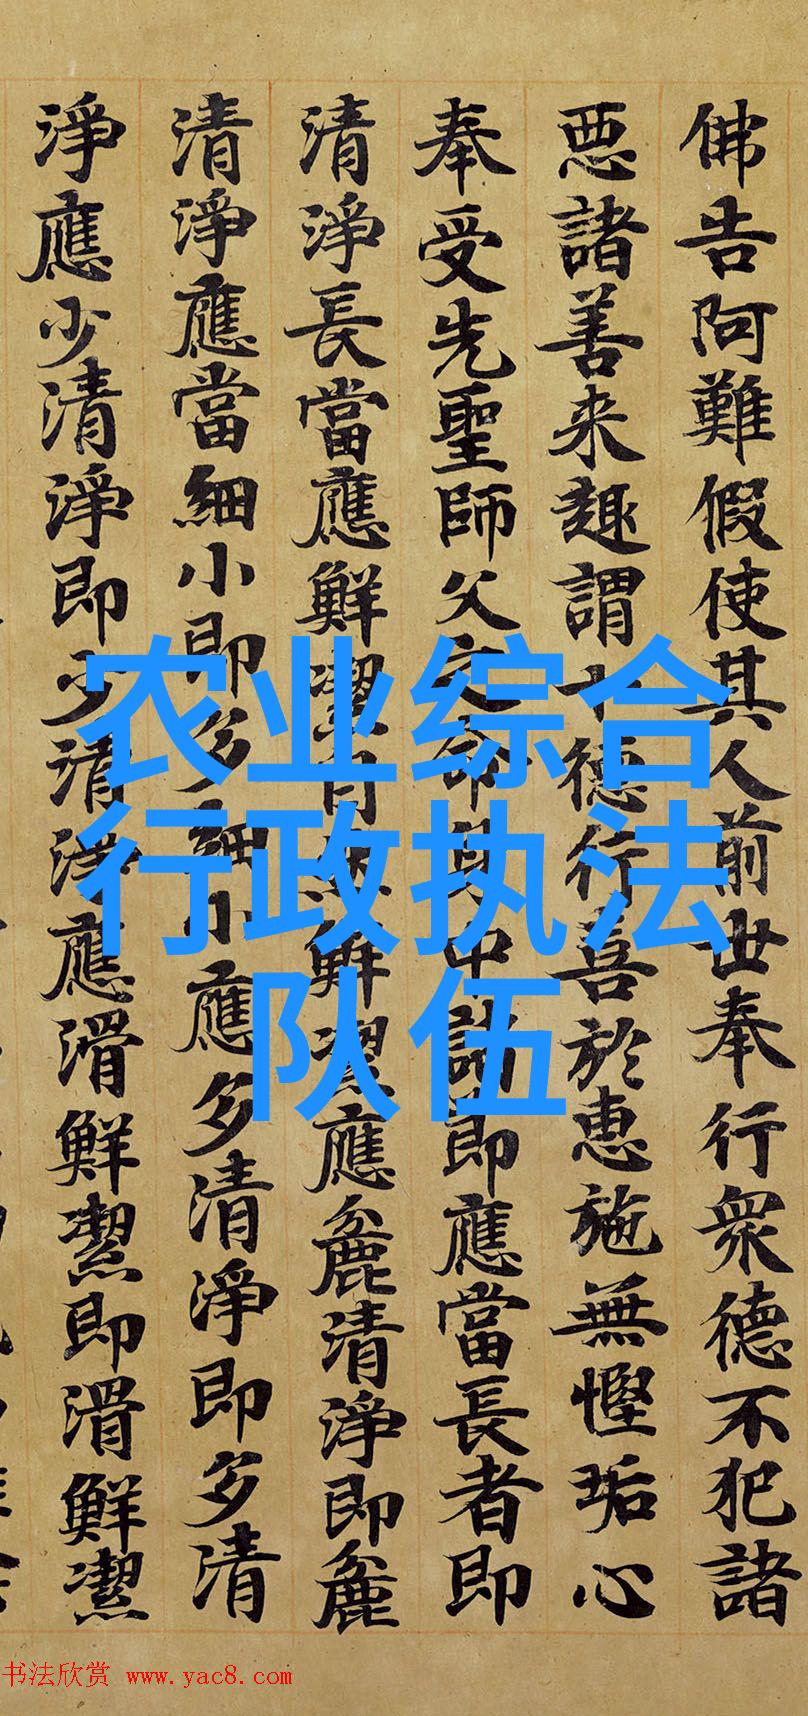 佛告阿難假使其人前世奉行衆德不犯諸
惡諸善来趣謂十德行喜於惠施無慳垢心
奉受先聖師父之命身中諸即應當長者即
清淨長當應鮮潔自然鮮潔應麁清淨即麁
清淨應當細小即多細小應多清淨即多清
淨應少清淨即少清淨應滑鮮潔即滑鮮潔
农业综合
行政执法
队伍
书法欣赏 www.yac8.com